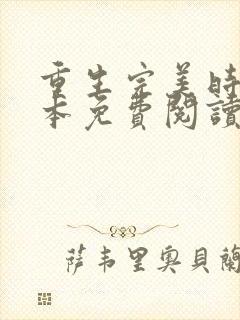 重生完美時
本免費閱讀
萨韦里奥贝蘭